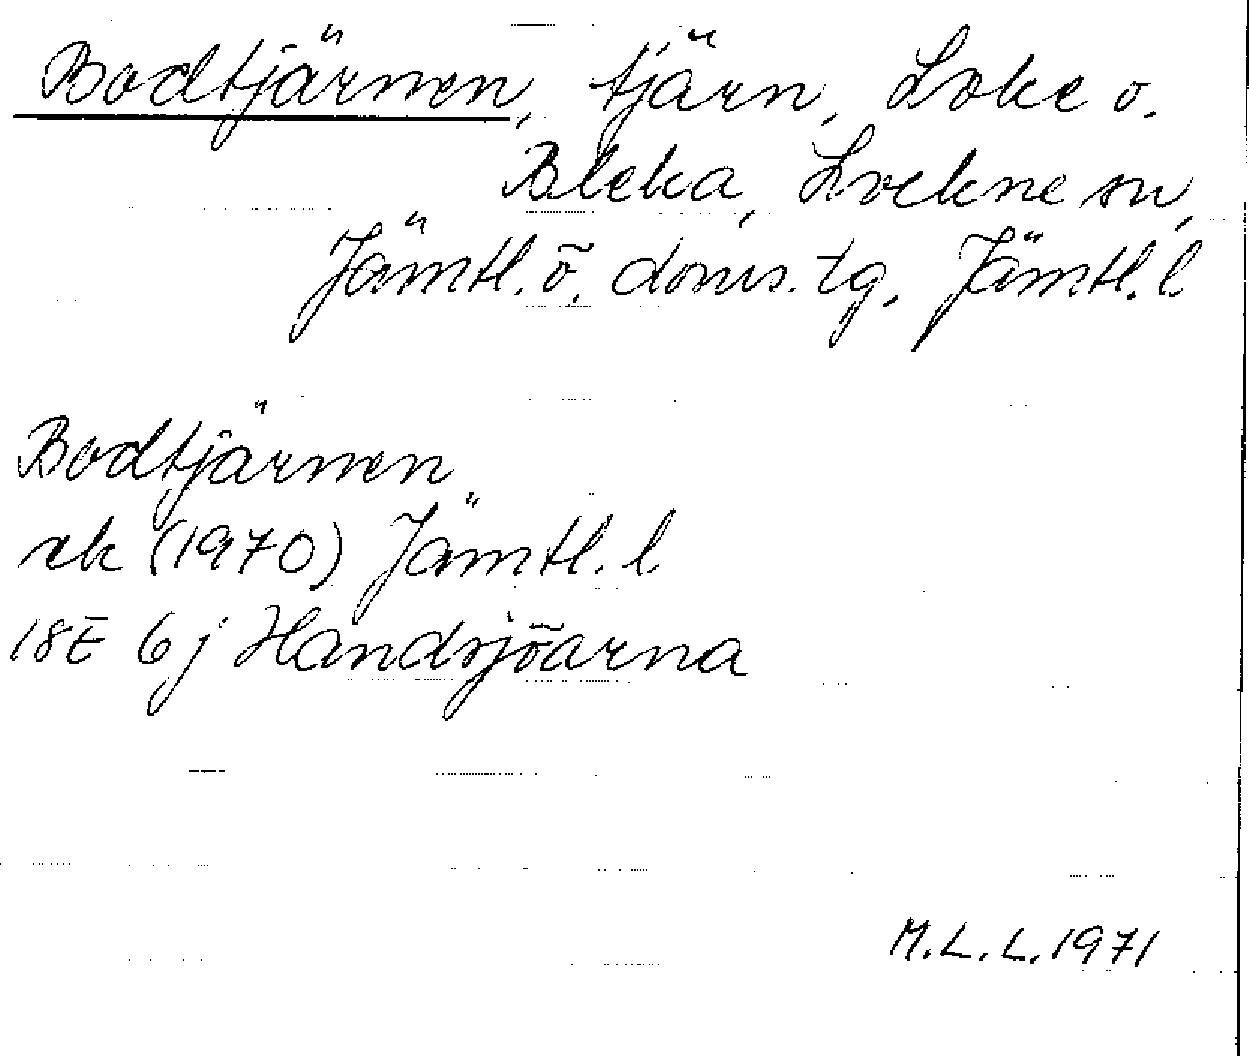 Bodtjärnen, tjärn, Loke o.
Bleka, Lockne sn,
Jämtl. ö. doms. tg, Jämtl. l
Bodtjärnen
rk (1970) Jämtl. l
18E 6j Handsjöarna
M.L.L. 1971